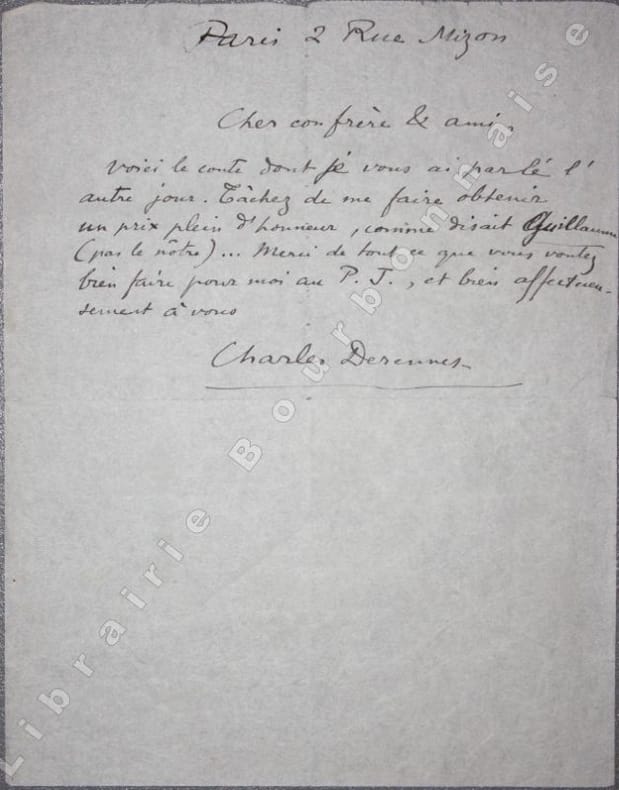 Paris 2 Rue Mizon
Cher confrère & ami,
Voici le conte dont je vous ai parlé l'
autre jour. Tâchez de me faire obtenir
un prix plein d'honneur, comme disait Guillaume
(pas le nôtre)... Merci de tout ce que vous voulez
bien faire pour moi au P. J., et bien affectueu-
sement à vous
Charles Derennes
Librairie Bourbonnaise